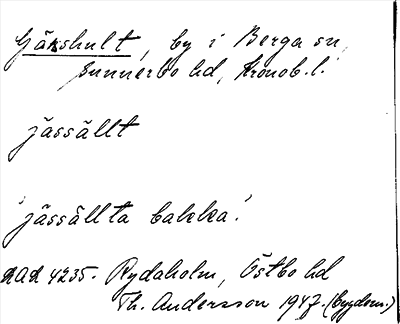 Gäkshult, by i Berga sn,
Sunnerbo hd, Kronob.l.
jässällt
'jässällta bakka'.
DAL 4235. Rydaholm, Östbo hd
Th. Andersson 1947. (bygdem.)